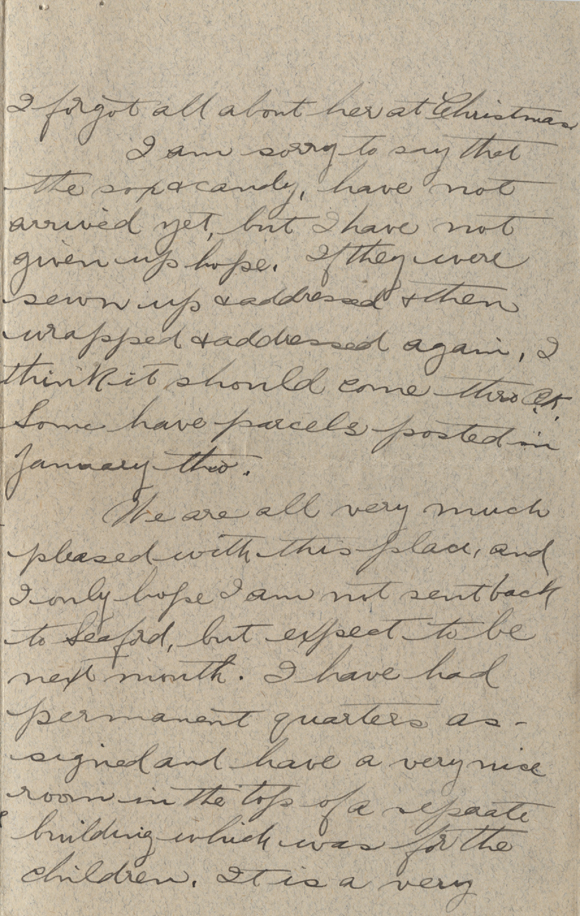 I forgot all about her at Christmas
I am sorry to say that
the sox & candy, have not
arrived yet, but I have not
given up hope. If they were
sewn up & addressed & then
wrapped & addressed again, I
think it should come thro O.K.
Some have parcels posted in
January tho.
We are all very much
pleased with this place, and
I only hope I am not sent back
to Seaford, but expect to be
next month. I have had
permanent quarters as-
signed and have a very nice
room in the top of a separate
building which was for the
children. It is a very